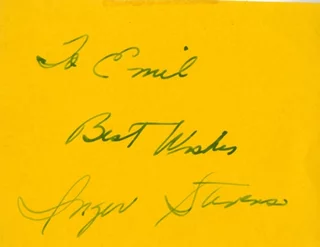 To Emil
Best Wishes
Inger Stevens